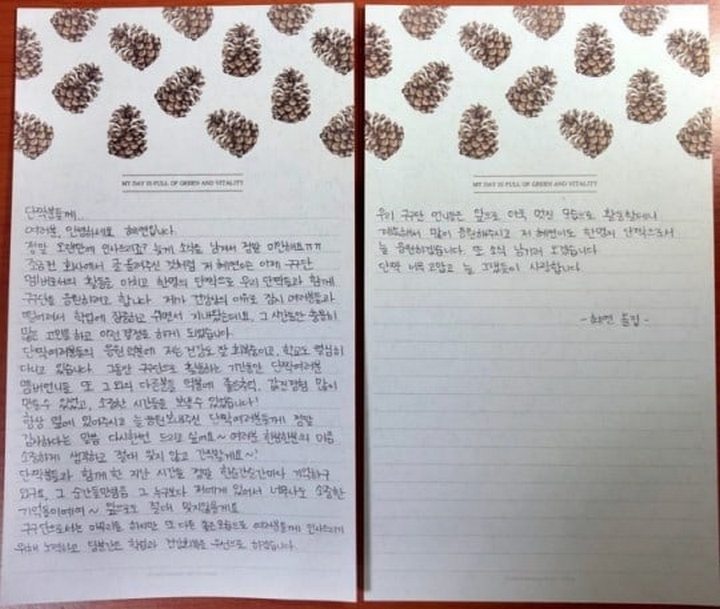 MY DAY IS FULL OF GREEN AND VITALITY
단짝분들께..
여러분, 안녕하세요 혜연입니다.
정말 오랜만에 인사드리죠? 늦게 소식을 남겨서 정말 미안해요ㅠㅠ
조금전 회사에서 글 올려주신 것처럼 저 혜연이는 이제 구구단
멤버로서의 활동을 마치고 한명의 단짝으로 우리 단짝들과 함께
구구단을 응원하려고 합니다. 제가 건강상의 이유로 잠시 여러분들과
떨어져서 학업에 집중하고 쉬면서 지내왔는데요, 그 시간동안 충분히
많은 고민을 하고 이런 결정을 하게 되었습니다.
단짝여러분들의 응원 덕분에 저는 건강도 잘 회복중이고, 학교도 열심히
다니고 있습니다. 그동안 구구단으로 활동하는 기간동안 단짝여러분
멤버언니들 또 그 외의 다른분들 덕분에 좋은추억, 값진경험 많이
만들 수 있었고, 소중한 시간들을 보낼 수 있었습니다!
항상 옆에 있어주시고 늘 응원보내주신 단짝여러분들께 정말
감사하다는 말씀 다시한번 드리고 싶어요~ 여러분 한분한분의 마음
소중하게 생각하고 절대 잊지 않고 간직할게요~!
단짝분들과 함께 한 지난 시간들 정말 한순간순간마다 기억하구
있구요, 그 순간들만큼은 그 누구보다 저에게 있어서 너무나도 소중한
기억들이에요~ 앞으로도 절대 잊지않을게요
구구단으로서는 마무리를 하지만 또 다른 좋은모습으로 여러분들께 인사드리기
위해 노력하고, 당분간은 학업과 건강회복을 우선으로 하겠습니다.
MY DAY IS FULL OF GREEN AND VITALITY
우리 구구단 언니들은 앞으로 더욱 멋진 모습으로 활동할테니
계속해서 많이 응원해주시고 저 혜연이도 한명의 단짝으로서
늘 응원하겠습니다. 또 소식 남기러 오겠습니다
단짝 너무 고맙고 늘 그랬듯이 사랑합니다.
- 혜연 올림 -